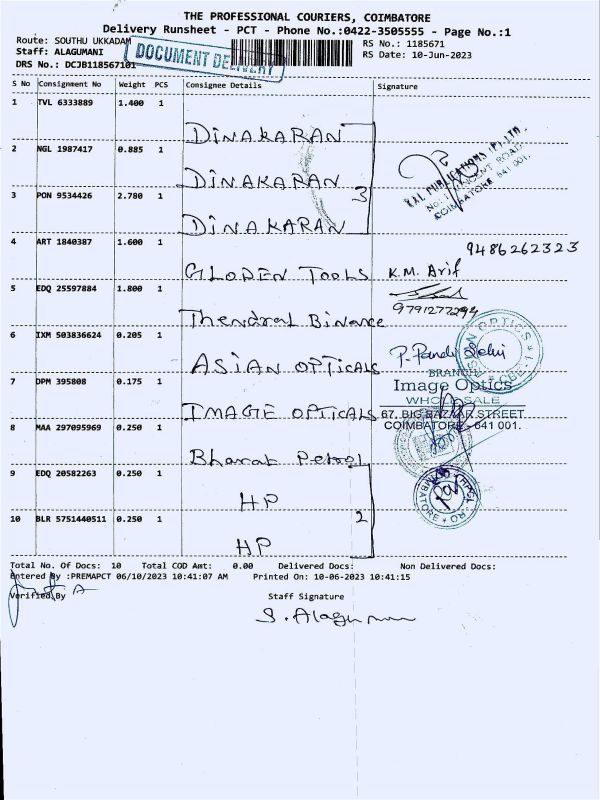 THE PROFESSIONAL COURIERS, COIMBATORE
Delivery Runsheet - PCT - Phone No.:0422-3505555 - Page No.:1
Route: SOUTHU UKKADAM
Staff: ALAGUMANI
DRS No.: DCJB118567101
DOCUMENT DELIVERY
RS No.: 1185671
RS Date: 10-Jun-2023
S No Consignment No Weight PCS Consignee Details Signature
1 TVL 6333889 1.400 1 DINAKARAN
2 NGL 1987417 0.885 1 DINAKARAN
3 PON 9534426 2.780 1 DINAKARAN
3
KAL PUBLICATIONS (P) LTD.
COIMBATORE - 641 001.
4 ART 1840387 1.600 1 GLODEN TOOLS K.M. Arif
9486262323
5 EDQ 25597884 1.800 1 Thendral Binance
9791277294
6 IXM 503836624 0.205 1 ASIAN OPTICALS
7 DPM 395808 0.175 1 IMAGE OPTICALS
BRANCH:
Image Optics
WHOLESALE
67, BIG BAZAAR STREET
COIMBATORE - 641 001.
8 MAA 297095969 0.250 1 Bharat Petrol
9 EDQ 20582263 0.250 1 HP
10 BLR 5751440511 0.250 1 HP
2
COIMBATORE
Total No. Of Docs: 10 Total COD Amt: 0.00 Delivered Docs: Non Delivered Docs:
Entered By :PREMAPCT 06/10/2023 10:41:07 AM Printed On: 10-06-2023 10:41:15
Verified By Staff Signature